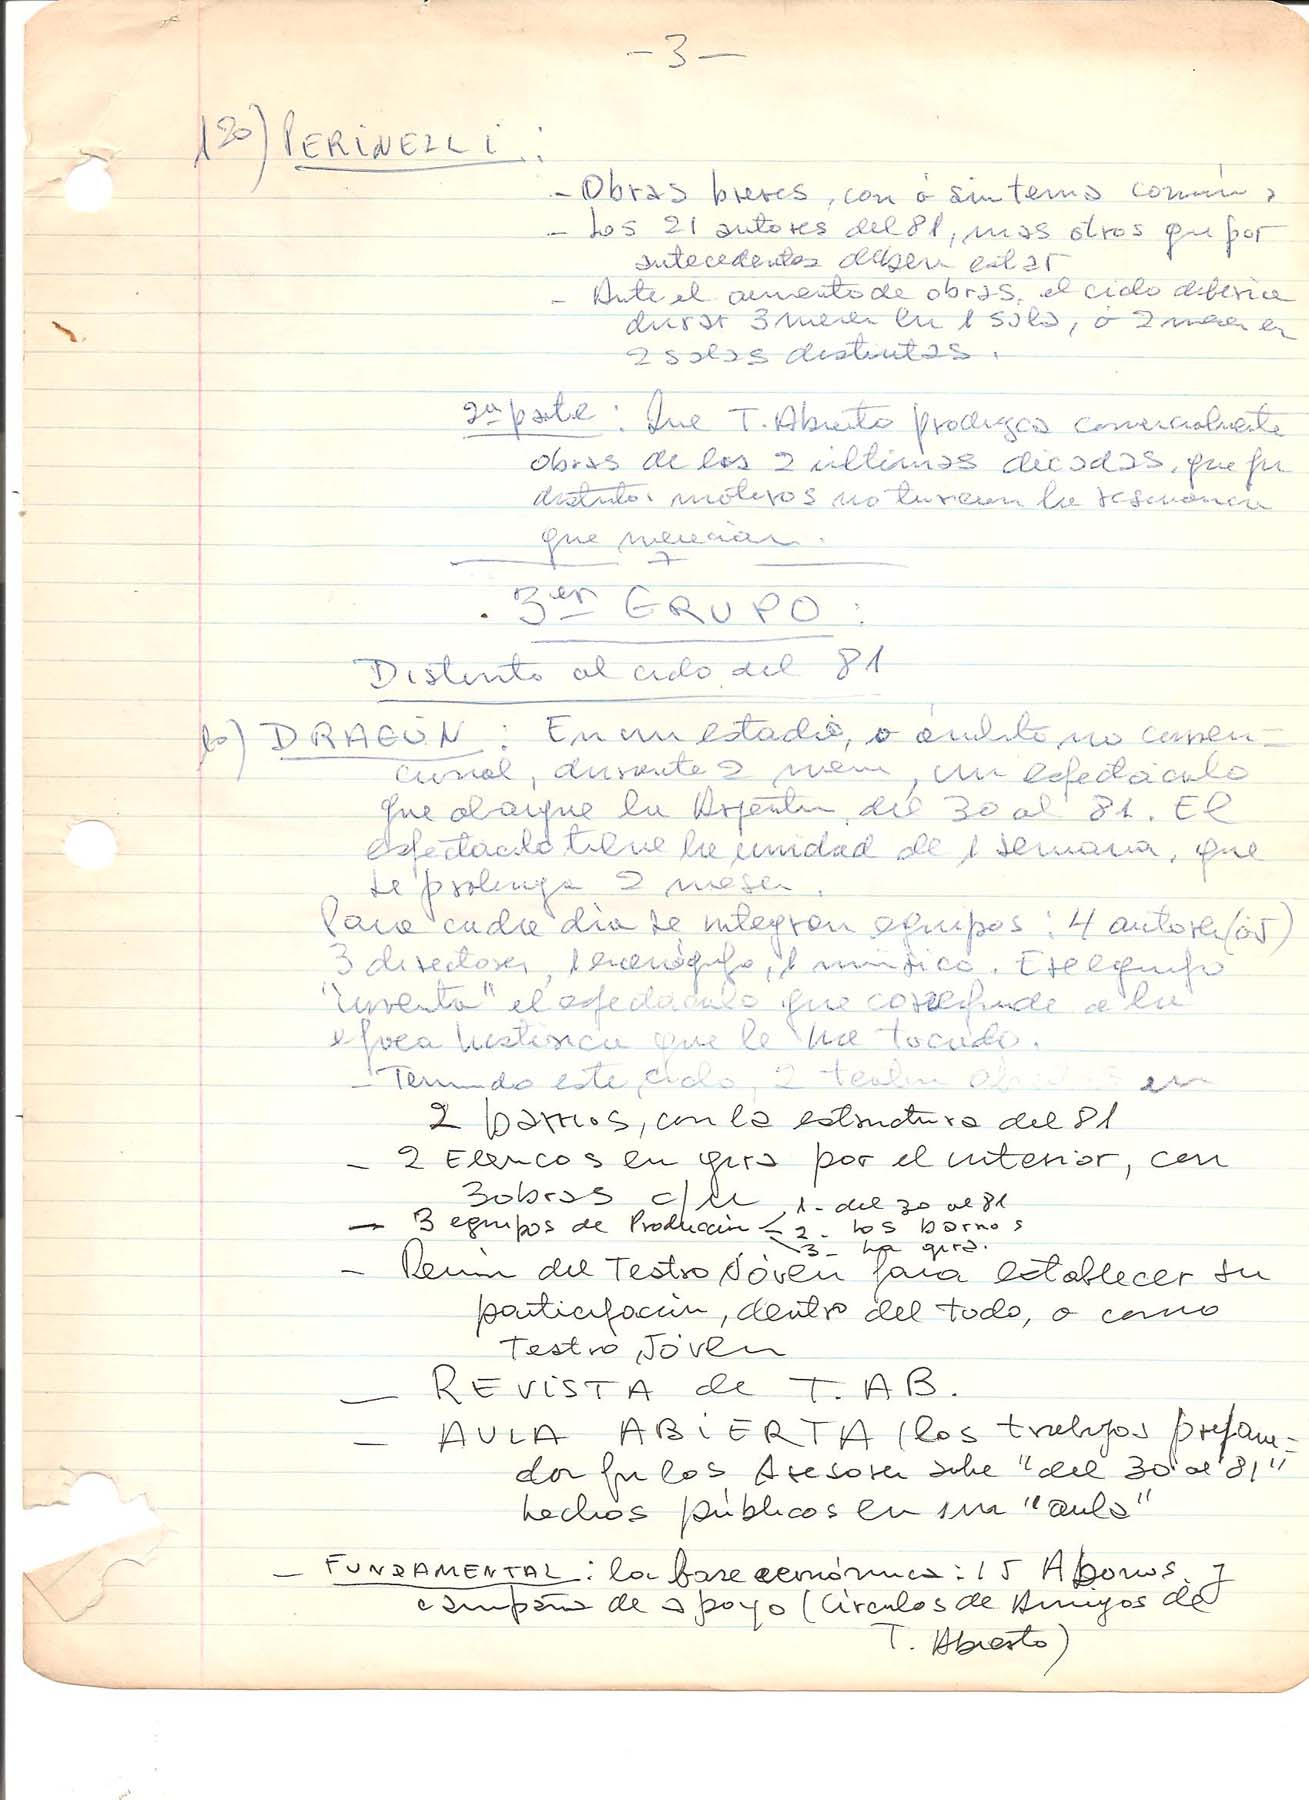 — 3 —
120) PERINELLI :
- Obras breves, con ó sin tema común.
- Los 21 autores del 81, mas otros que por
antecedentes deben estar
- Ante el aumento de obras, el ciclo deberia
durar 3 meses en 1 sala, ó 2 meses en
2 salas distintas.
2ª parte : Que T. Abierto produzca comercialmente
obras de las 2 últimas décadas, que por
distintos motivos no tuvieron la resonancia
que merecían.
3er GRUPO :
Distinto al ciclo del 81
DRAGÚN : En un estadio, o ámbito no conven=
cional, durante 2 meses, un espectáculo
que abarque la Argentina del 30 al 81. El
espectáculo tiene la unidad de 1 semana, que
se prolonga 2 meses.
Para cada día se integran equipos : 4 autores(as)
3 directores, 1 escenógrafo, 1 músico. Ese equipo
"inventa" el espectáculo que corresponde a la
época histórica que le ha tocado.
- Terminado este ciclo, 2 teatros abiertos en
2 barrios, con la estructura del 81
- 2 Elencos en gira por el interior, con
3 obras c/u
- 3 equipos de Producción 1- del 30 al 81
2- Los barrios
3- La gira.
- Reunión del Teatro Jóven para establecer su
participación, dentro del todo, o como
Teatro Jóven
- REVISTA de T. AB.
- AULA ABIERTA (los trabajos prepara=
dos por los Asesores sobre "del 30 al 81"
hechos públicos en un "aula"
- FUNDAMENTAL : la base económica : 15 Abonos y
campaña de apoyo (Círculos de Amigos de
T. Abierto)